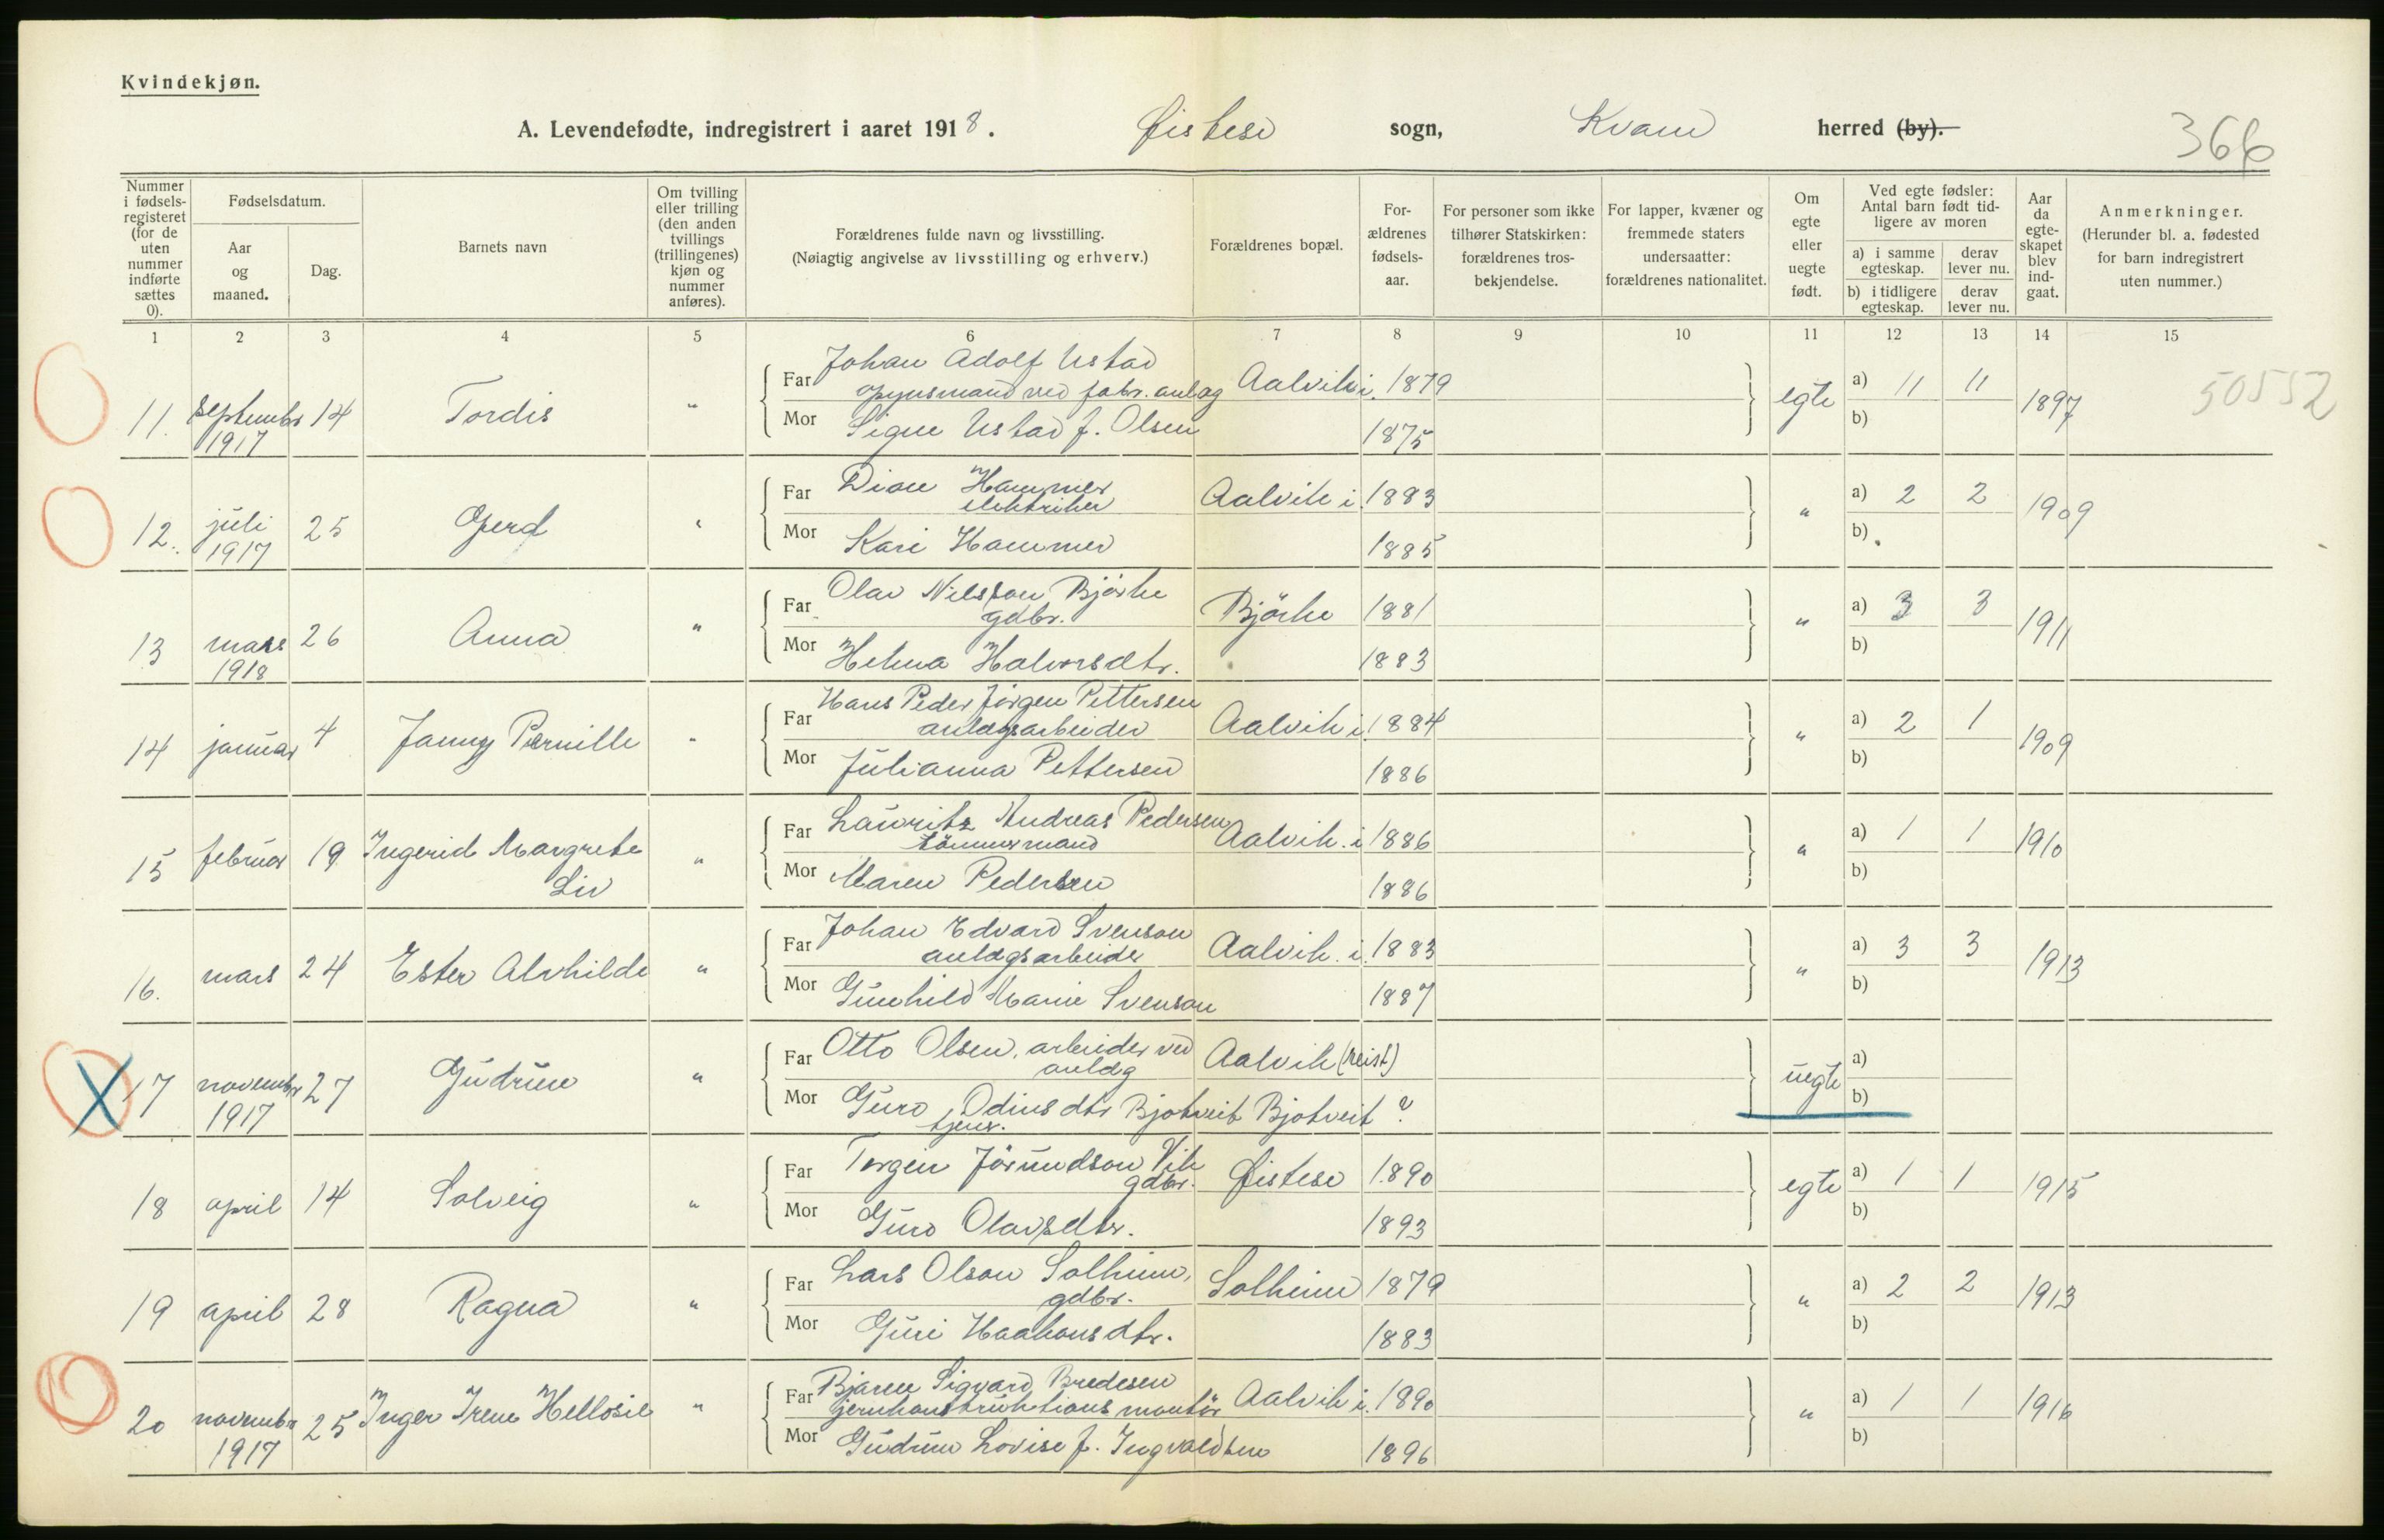 Kvindekjøn.
A. Levendefødte, indregistrert i aaret 1918. Øistese sogn, Kvam herred (by).
366
Nummer i fødsels-registeret (for de uten nummer indførte sættes 0).
Fødselsdatum.
Aar og maaned.
Dag.
Barnets navn
Om tvilling eller trilling (den anden tvillings (trillingenes) kjøn og nummer anføres).
Forældrenes fulde navn og livsstilling.
(Nøiagtig angivelse av livsstilling og erhverv.)
Forældrenes bopæl.
For-ældrenes fødsels-aar.
For personer som ikke tilhører Statskirken: forældrenes tros-bekjendelse.
For lapper, kvæner og fremmede staters undersaatter: forældrenes nationalitet.
Om egte eller uegte født.
Ved egte fødsler: Antal barn født tid-ligere av moren
a) i samme egteskap. derav lever nu.
b) i tidligere egteskap. derav lever nu.
Aar da egte-skapet blev ind-gaat.
Anmerkninger.
(Herunder bl. a. fødested for barn indregistrert uten nummer.)
1 2 3 4 5 6 7 8 9 10 11 12 13 14 15
Far Johan Adolf Ustad
opsynsmand ved fabr. anlæg Aalvik i. 1879
11. september 1917 14 Tordis " egte a) 11 11 b) 1897 50552
Mor Signe Ustad f. Olsen 1875
Far Hammer
elektriker Aalvik i. 1883
12. juli 1917 25 Gjerd " " a) 2 2 b) 1909
Mor Kari Hammer 1885
Far Olav Nilsson Bjørke
gdbr. Bjørke 1881
13 mars 1918 26 Anna " " a) 3 3 b) 1911
Mor Helena Halvorsdtr. 1883
Far Hans Peder Jørgen Pettersen
anlægsarbeider Aalvik i. 1884
14 januar 4 Janny Pernille " " a) 2 1 b) 1909
Mor Julianna Pettersen 1886
Far Lauritz Andreas Pedersen
tømmermand Aalvik. i 1886
15 februar 19 Ingerid Margrete Liv " " a) 1 1 b) 1910
Mor Maren Pedersen 1886
Far Johan Edvard Svenson
anlægsarbeider Aalvik. i. 1883
16. mars 24 Ester Alvhilde " " a) 3 3 b) 1913
Mor Gunhild Marie Svenson 1887
Far Otto Olsen, arbeider ved
anlæg Aalvik (reist)
17 november 1917 27 Gudrun " uegte a) b)
Mor Guro Odinsdtr Bjotveit Bjotveit ?
tjener.
Far Torgeir Jørundson Vik
gdbr. Øistese 1890
18 april 14 Solveig " egte a) 1 1 b) 1915
Mor Guro Olavsdtr. 1893
Far Lars Olson Solheim,
gdbr. Solheim 1879
19 april 28 Ragna " " a) 2 2 b) 1913
Mor Guri Haakonsdtr. 1883
Far Bjarne Sigvard Bredesen
jernkonstruktions montør Aalvik i. 1890
20 november 1917 25 Inger Irene " " a) 1 1 b) 1916
Mor Gudrun Lovise f. Ingvaldsen 1896